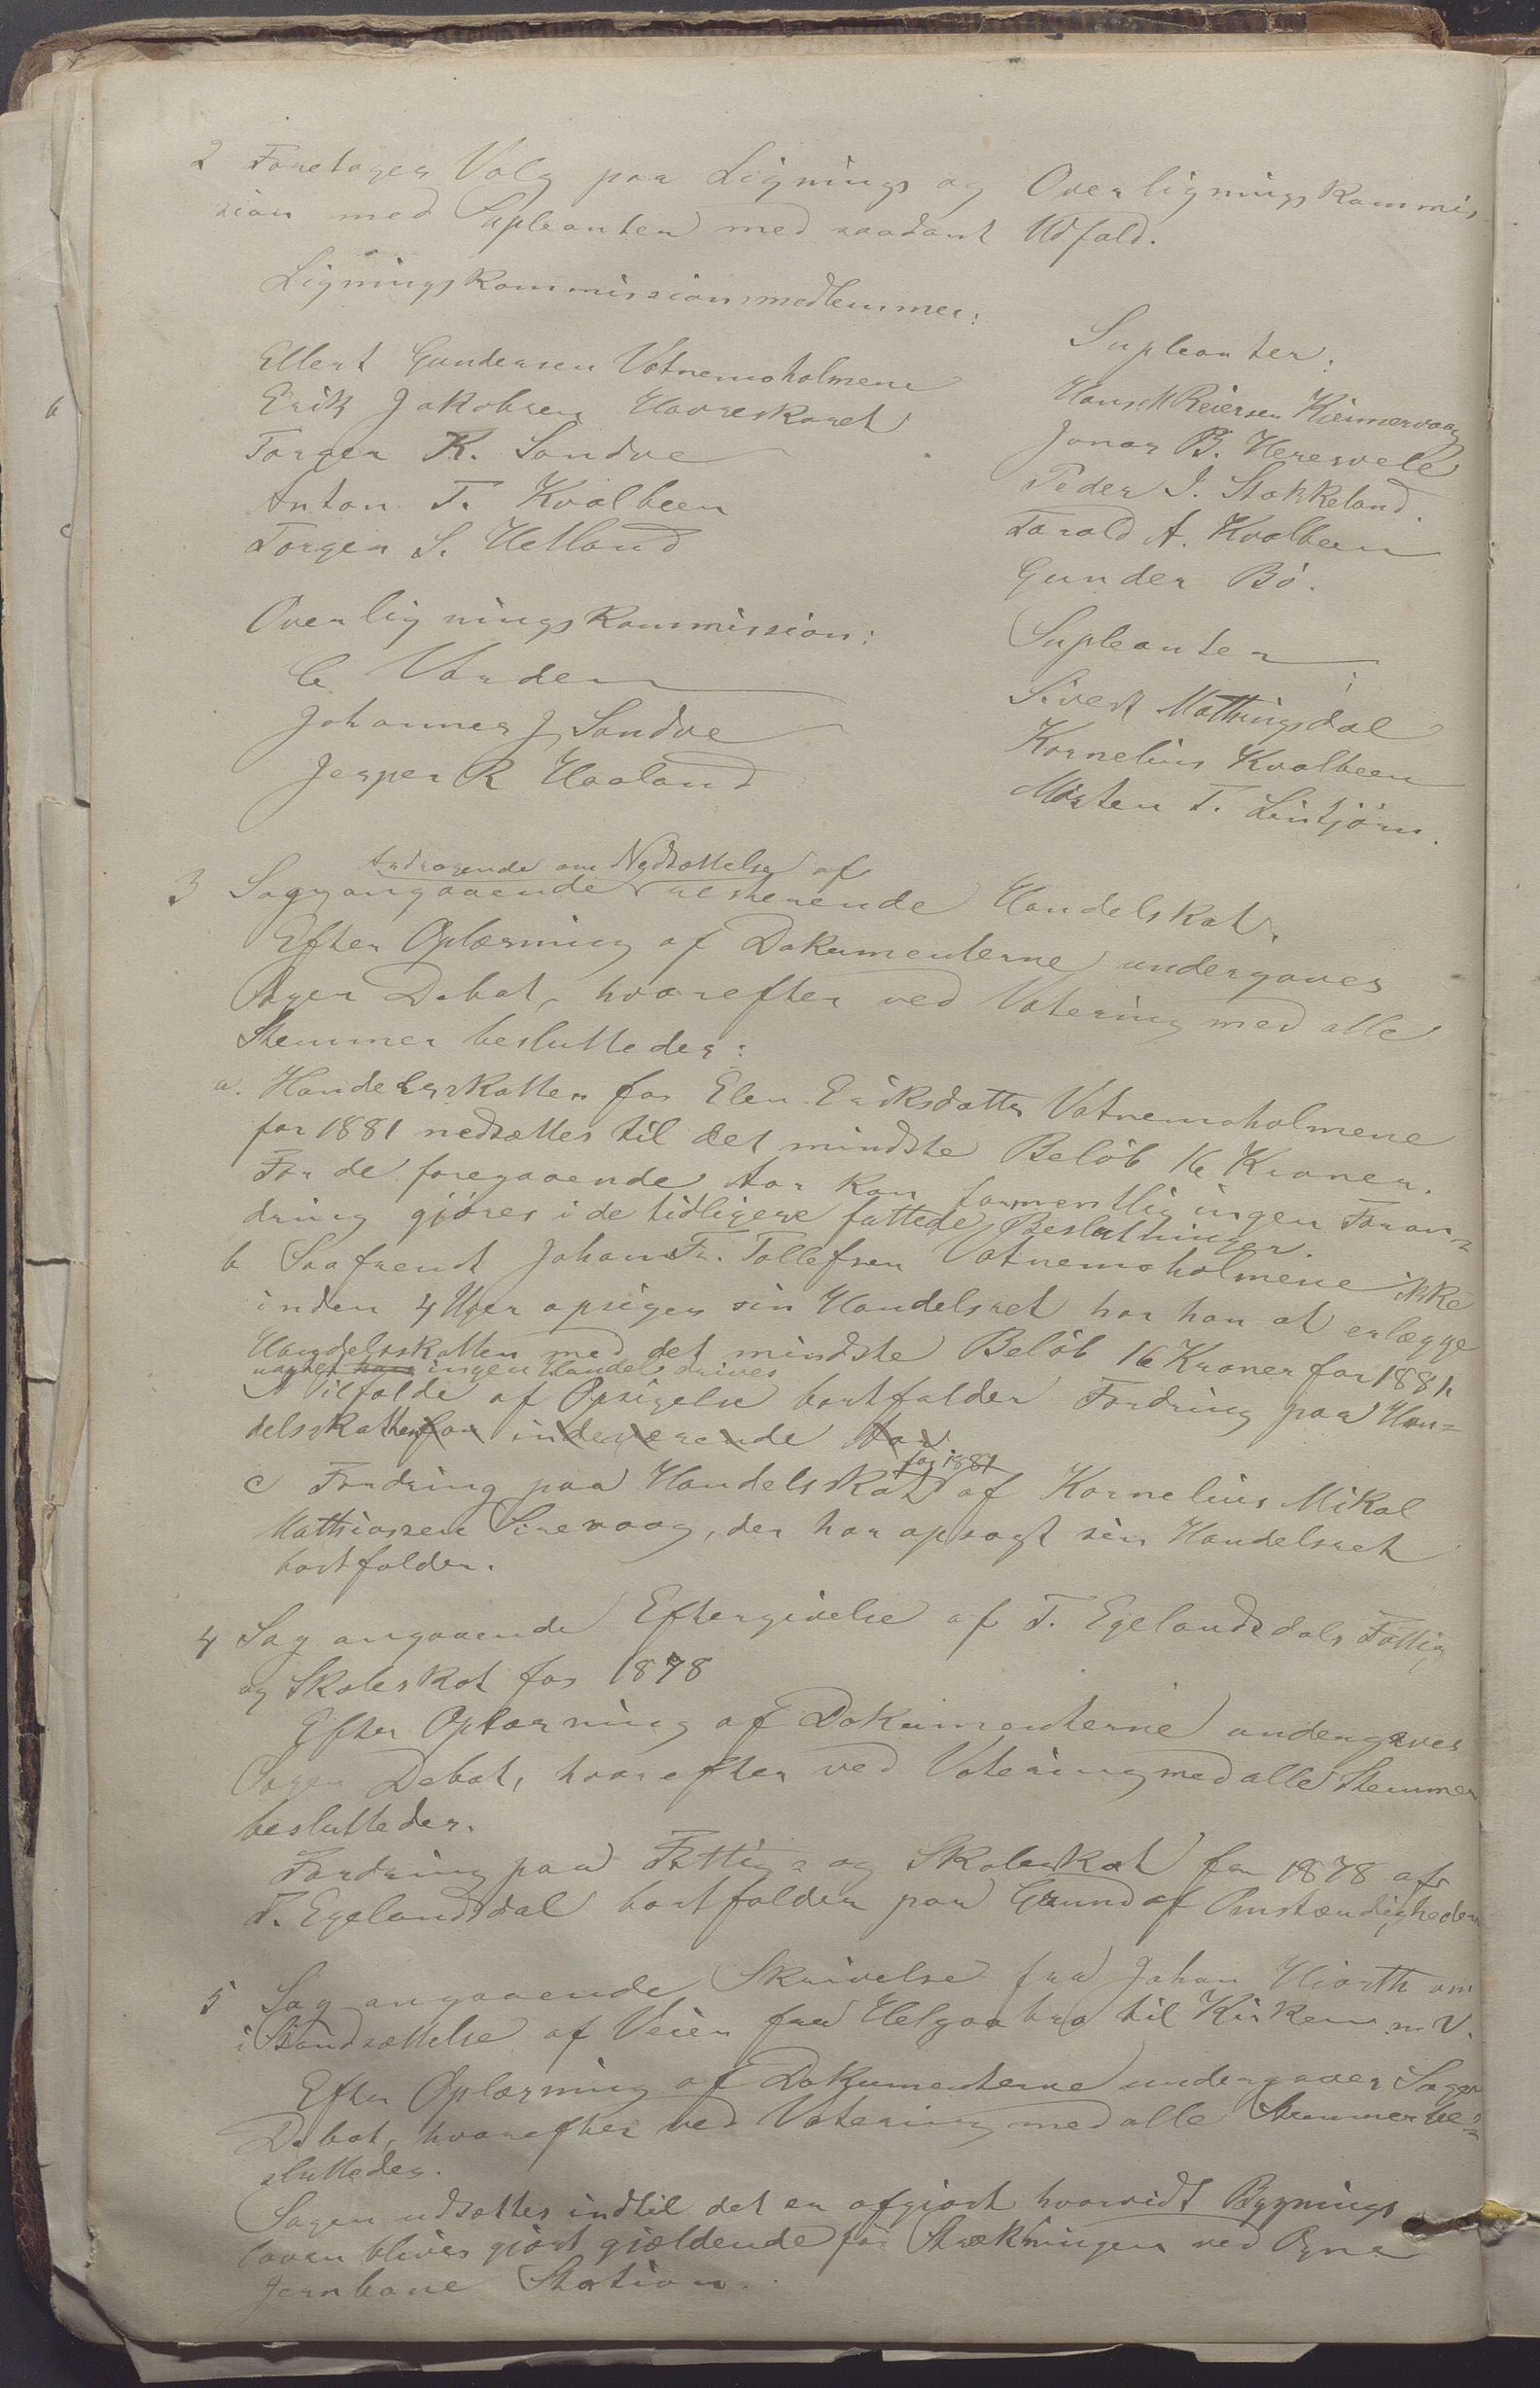 2 Foretoges Valg paa Lignings og Overligningskommis
sion med Supleanter med saadant Udfald.
Ligningskommissionsmedlemmer:
Ellert Gundersen Vatnemoholmene
Erik Jakobsen Havreskaret
Torger K. Sandve
Anton T. Kvalbeen
Torger S. Helland
Supleanter:
Hans M Reiersen Kjennervaag
Jonas B. Heresvele
Peder J. Stokkeland.
Tarald A. Kvalbeen
Gunder Bö.
Overligningskommission:
C. Varden
Johannes J. Sandve
Jesper R Haaland
Supleanter:
Sivert Mathingsdal
Kornelius Kvalbeen
Morten T. Lintjörn.
Andragende om Nedsættelse af
3 Sag angaaende resterende Handelskat.
Efter Oplæsning af Dokumenterne undergaves
Sagen Debat, hvorefter ved Votering med alle
Stemmer besluttedes:
a. Handelsskatten for Elen Eriksdatter Vatnemoholmene
for 1881 nedsættes til det mindste Belöb 16 Kroner.
For de foregaaende Aar kan formentlig ingen Foran=
dring gjöres i de tidligere fattede Beslutninger.
b Saafremt Johan Fr. Tollefsen Vatnemoholmene ikke
inden 4 Uger opsiger sin Handelsret har han at erlægge
Handelsskatten med det mindste Belöb 16 Kroner for 1881
uagtet ingen Handel drives
I Tilfælde af Opsigelse bortfalder Fordring paa Han=
delsskatten for indeværende Aar
for 1881
c Fordring paa Handelskat af Kornelius Mikal
Mathiassen Sirevaag, der har opsagt sin Handelsret
bortfalder.
4 Sag angaaende Eftergivelse af T. Egelandsdals Fattig
og Skoleskat for 1878
Efter Oplæsning af Dokumenterne undergaves
Sagen Debat, hvorefter ved Votering med alle Stemmer
besluttedes.
Fordring paa Fattig= og Skoleskat for 1878 af
T. Egelandsdal bortfalder paa Grund af Omstændighederne
5 Sag angaaende Skrivelse fra Johan Hiorth om
iStandsættelse af Veien fra Helgaa bro til Kirken m. V.
Efter Oplæsning af Dokumenterne undergaves Sagen
Debat, hvorefter ved Votering med alle Stemmer be=
sluttedes.
Sagen udsættes indtil det er afgjort hvorvidt Bygnings
loven bliver gjort gjældende for Strækningen ved Ogne
Jernbane Station.